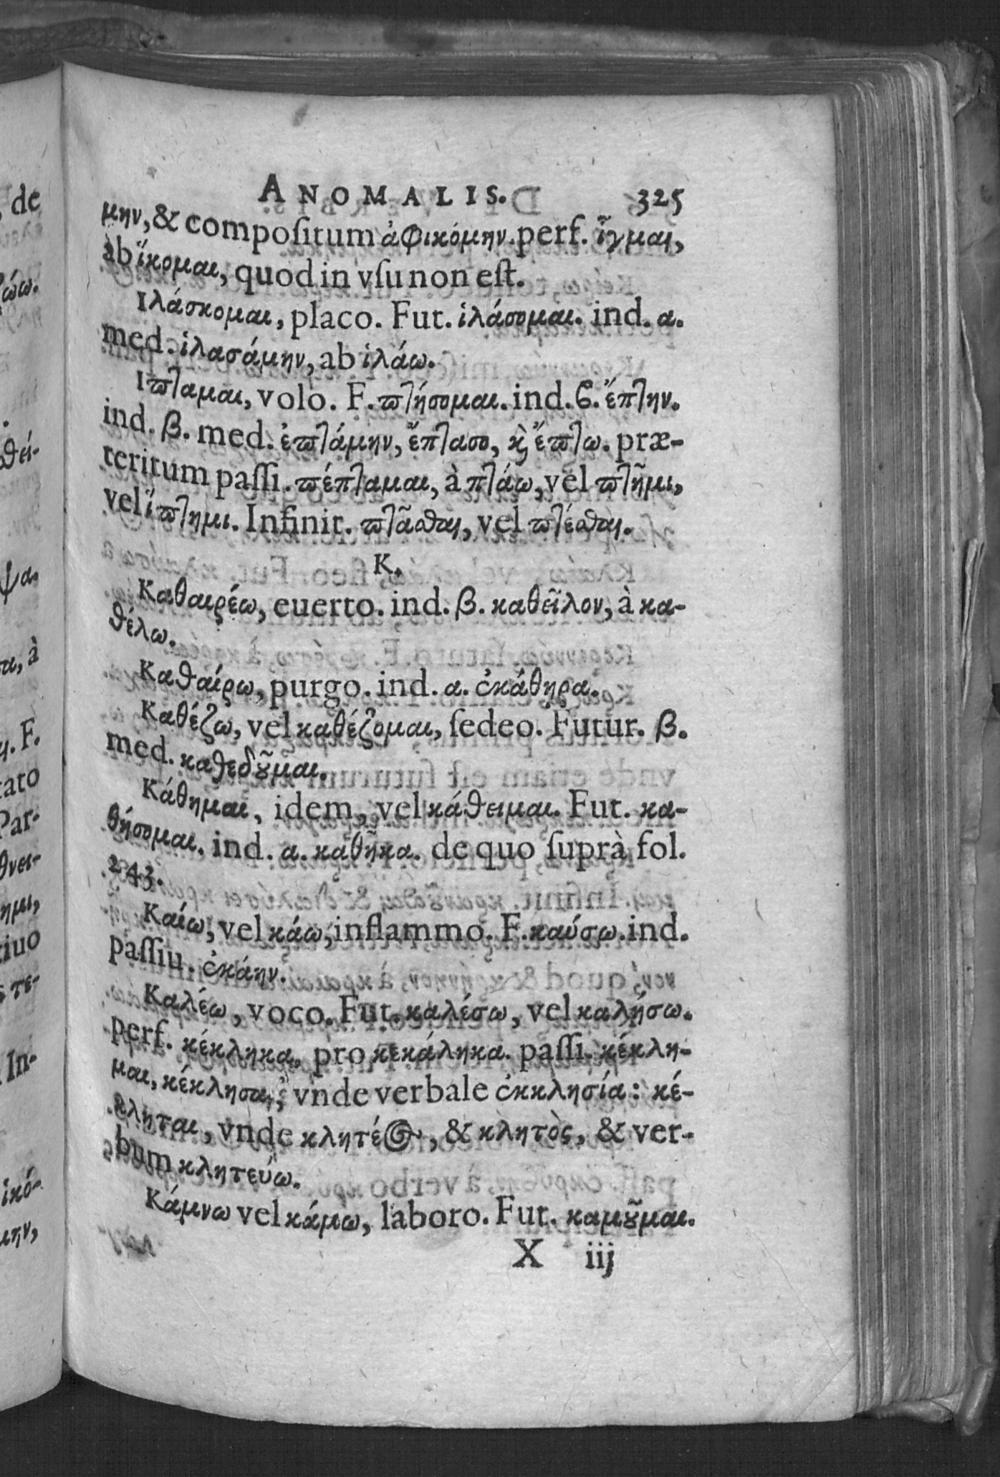 ANOMALIS. 325
μην, & compositum ἀφικόμην. perf. ἷγμαι,
ab ἵκομαι, quod in vsu non est.
Ιλάσκομαι, placo. Fut. ἱλάσομαι. ind. α.
med. ἱλασάμην, ab ἱλάω.
Ιπταμαι, volo. F. πτήσομαι. ind. β. ἔπτην.
ind. β. med. ἐπτάμην, ἔπτασο, κỳ ἔπτω. præ-
teritum passi. πέπταμαι, à πτάω, vel πτῆμι,
vel ἵπτημι. Infinit. πτᾶσθαι, vel πτέσθαι.
K.
Καθαιρέω, euerto. ind. β. καθεῖλον, à κα-
θέλω.
Καθαίρω, purgo. ind. α. ἐκάθηρα.
Καθέζω, vel καθέζομαι, sedeo. Futur. β.
med. καθεδοῦμαι.
Κάθημαι, idem, vel κάθειμαι. Fut. κα-
θήσομαι. ind. α. καθῆκα. de quo suprà fol.
243.
Καίω, vel κάω, inflammo. F. καύσω. ind.
passiu. ἐκάην.
Καλέω, voco. Fut. καλέσω, vel καλήσω.
perf. κέκληκα, pro κεκάληκα. passi. κέκλη-
μαι, κέκλησαι, vnde verbale ἐκκλησία: κέ-
κληται, vnde κλητέος, & κλητὸς, & ver-
bum κλητεύω.
Κάμνω vel κάμω, laboro. Fut. καμοῦμαι.
X iij
, de
ζώω.
θεί-
ψα,
, à
. F.
tato
Par-
θνει-
ημι,
tiuo
s τε-
. In-
ἱκό-
μην,